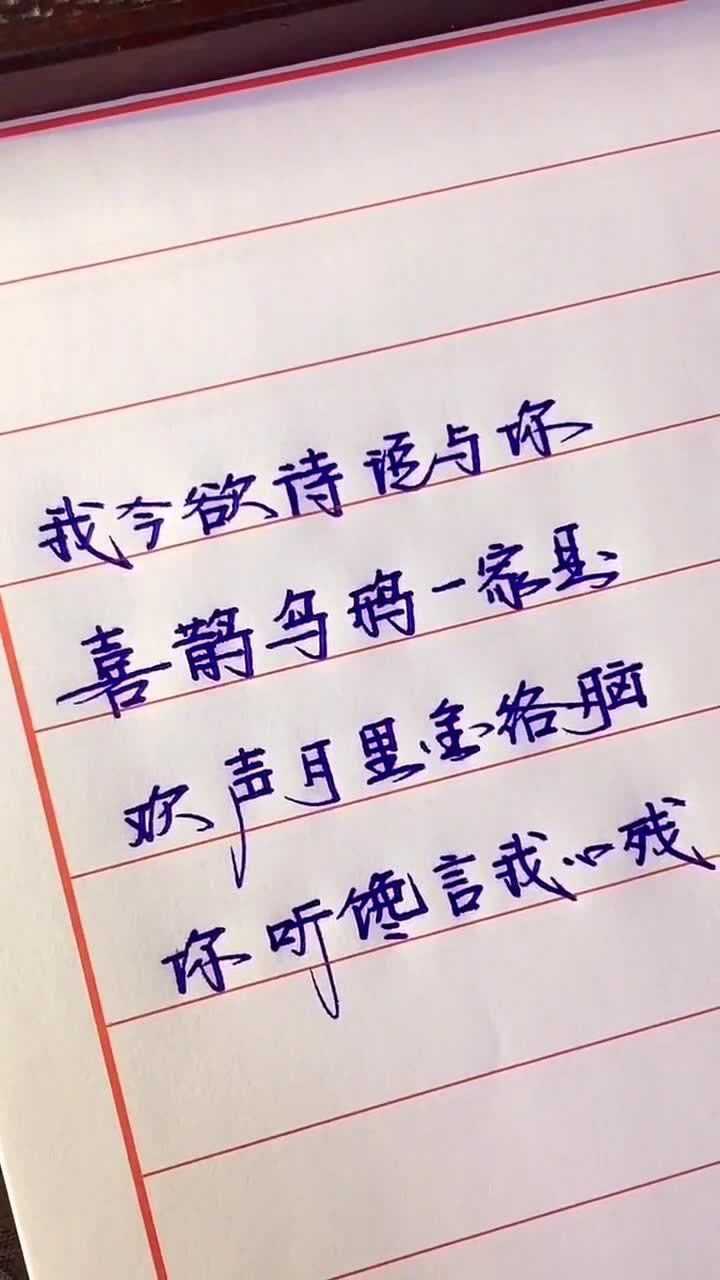 我今欲诗话与你
喜鹊乌鸦一家县
欢声月里金络脑
你听馋言我心残